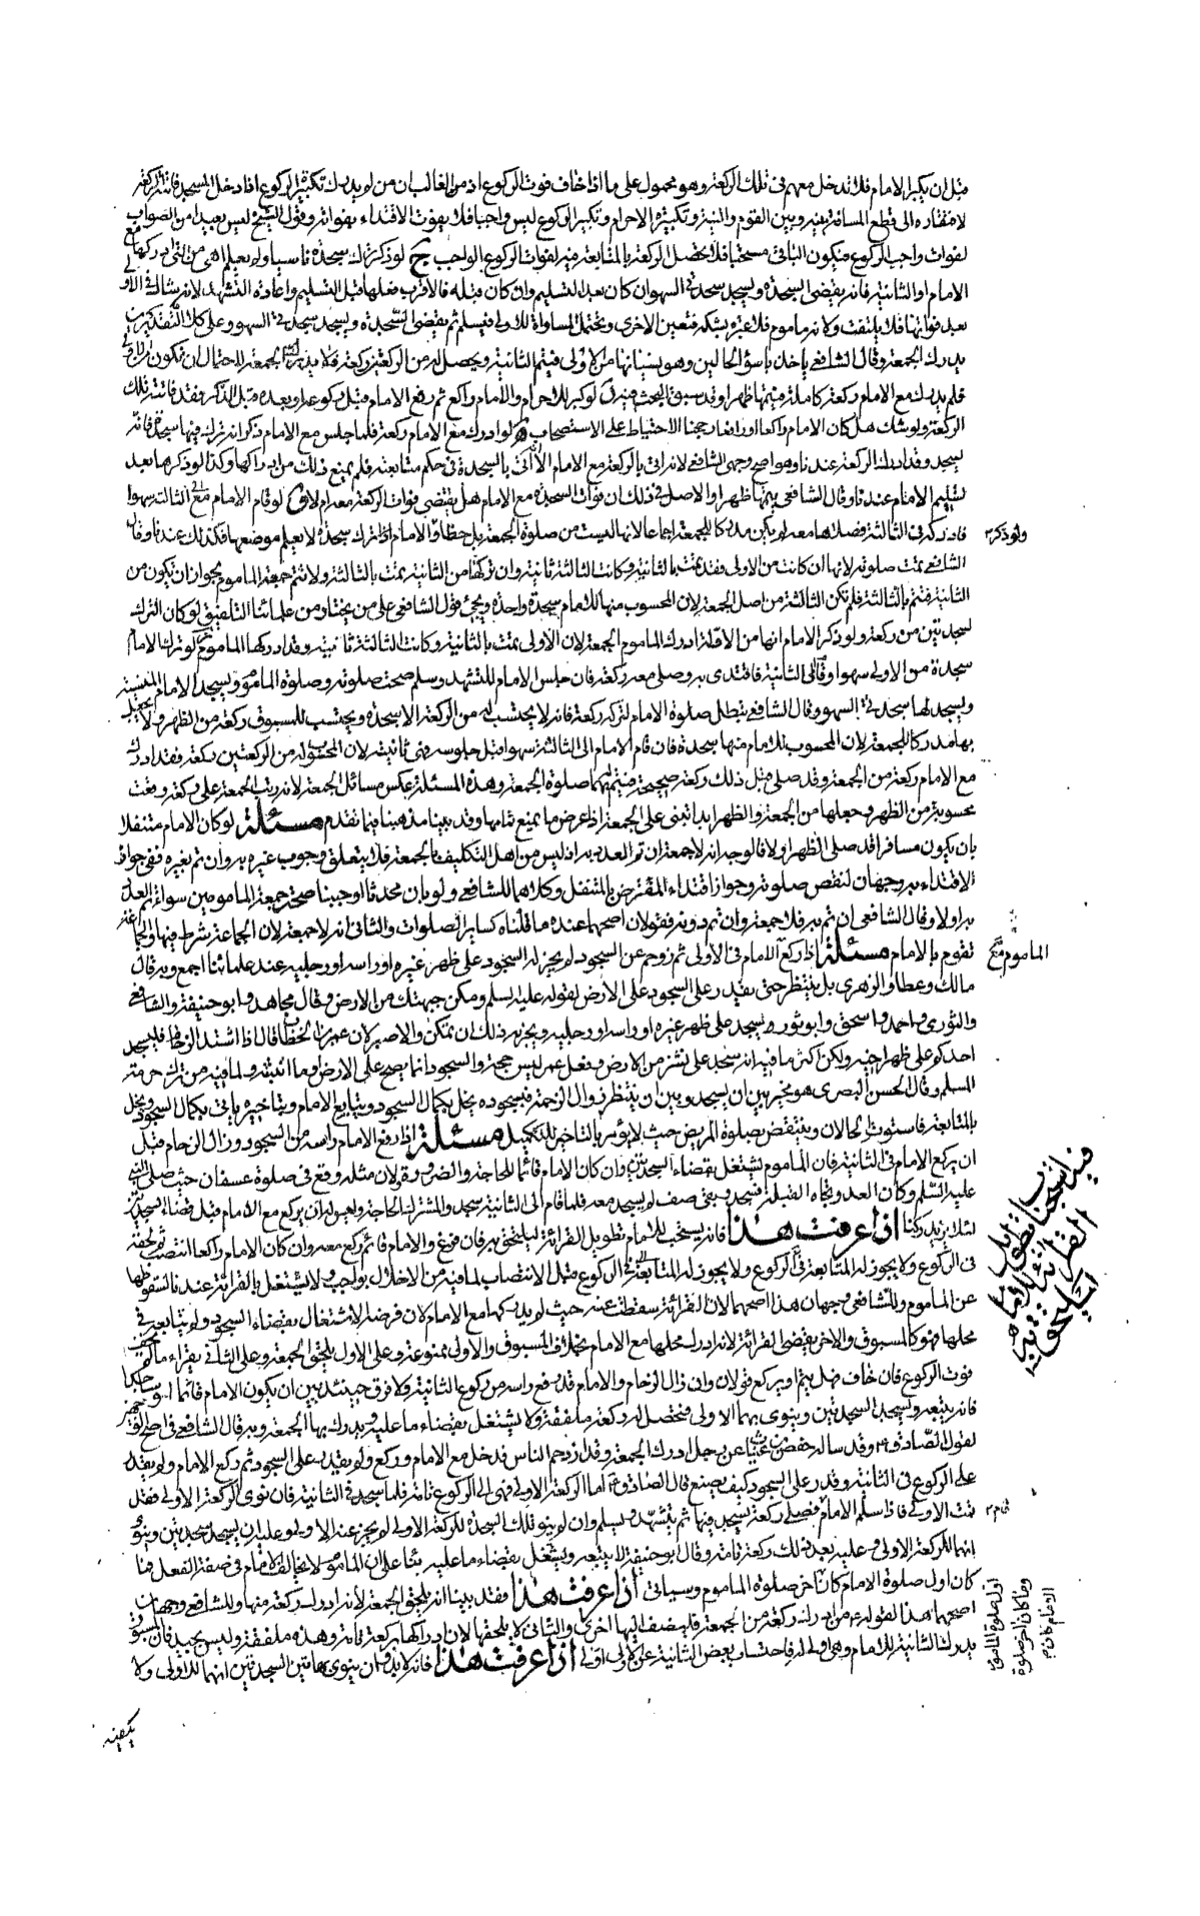 قبل ان يكبر الامام فلا تدخل معهم فى تلك الركعة وهو محمول على ما اذا خاف فوت الركوع اذ من الغالب ان من لم يدرك تكبيرة الركوع اذا دخل المسجد فاتته الركعة
لافتقاره الى قطع المسافة بينه وبين القوم والنية وتكبيرة الاحرام وتكبير الركوع ليس واجبا فلا يفوت الاقتداء بفواته وقول الشيخ ليس بعيدا من الصواب
لفوات واجب الركوع فيكون الباقى مستحبا فلا تحصل الركعة بالمتابعة فيه لفوات الركوع الواجب ج لو ذكر ترك سجدة ناسيا ولم يعلم اهى من التى ادركها مع
الامام او الثانية فانه يقضى السجدة ويسجد سجدتى السهو ان كان بعد التسليم وان كان قبله فالاقرب فعلها قبل التسليم واعادة التشهد لانه شاك فى الاولى
بعد فواتها فلا يلتفت ولانه ماموم فلا عبرة بشكه فتعين الاخرى ويحتمل المساواة للاولى فيسلم ثم يقضى السجدة ويسجد سجدتى السهو وعلى كلا التقديرين
يدرك الجمعة وقال الشافعى ياخذ باسوء الحالين وهو نسيانها من الاولى فيتم الثانية ويحصل له من الركعتين ركعة فلا يدرك الجمعة لاحتمال ان تكون من الاولى
فلم يدرك مع الامام ركعة كاملة فيتمها ظهرا وقد سبق البحث فيه د لو كبر للاحرام والامام راكع ثم رفع الامام قبل ركوعه او بعده قبل الذكر فقد فاتته تلك
الركعة ولو شك هل كان الامام راكعا او رافعا رجحنا الاحتياط على الاستصحاب ه لو ادرك مع الامام ركعة فلما جلس مع الامام ذكر انه ترك فيها سجدة فانه
يسجد وقد ادرك الركعة عندنا وهو اصح وجهى الشافعى لانه اتى بالركعة مع الامام الا انه اتى بالسجدة فى حكم متابعته فلم يمنع ذلك من ادراكها وكذا لو ذكرها بعد
تسليم الامام عندنا وقال الشافعى يتمها ظهرا والاصل فى ذلك ان فوات السجدة مع الامام هل يقتضى فوات الركعة معه ام لا و لو قام الامام الى الثالثة سهوا
فادركه فى الثالثة فصلاها معه لم يكن مدركا للجمعة اجماعا لانها ليست من صلوة الجمعة بل خطأ والامام اذا ترك سجدة لا يعلم موضعها فكذلك عندنا وقال
ولو ذكر
الشافعى تمت صلوته لانها ان كانت من الاولى فقد تمت بالثانية وكانت الثالثة ثانية وان تركها من الثانية تمت بالثالثة ولا تتم جمعة الماموم لجواز ان يكون من
الثانية فتتم بالثالثة فلم تكن الثالثة من اصل الجمعة لان المحسوب منها للامام سجدة واحدة ويجئ قول الشافعى على من يختار من علمائنا التلفيق لو كان الترك
لسجدتين من ركعة ولو ذكر الامام انها من الاولة ادرك الماموم الجمعة لان الاولى تمت بالثانية وكانت الثالثة ثانية وقد ادركها الماموم ز لو ترك الامام
سجدة من الاولى سهوا وقام الى الثانية فاقتدى به وصلى معه ركعة فان جلس الامام للتشهد وسلم صحت صلوته وصلوة الماموم ويسجد الامام المنسية
ويسجد لها سجدتى السهو وقال الشافعى تبطل صلوة الامام لتركه ركعة فانه لا يحتسب له من الركعة الا سجدة ويحتسب للمسبوق ركعة من الظهر ولا يجعل
بها مدركا للجمعة لان المحسوب للامام منها سجدة فان قام الامام الى الثالثة سهوا قبل جلوسه فهى ثانيته لان المحسوب له من الركعتين ركعة فقد ادرك
مع الامام ركعة من الجمعة وقد صلى قبل ذلك ركعة صحيحة فيتم بهما صلوة الجمعة وهذه المسئلة عكس مسائل الجمعة لانه رتب الجمعة على ركعة وقعت
محسوبة من الظهر وجعلها من الجمعة والظهر ابدا تبنى على الجمعة اذا عرض ما يمنع تمامها وقد بينا مذهبنا فيما تقدم مسئلة لو كان الامام متنفلا
بان يكون مسافرا قد صلى الظهر اولا فالوجه انه لا جمعة ان تم العدد به اذ ليس من اهل التكليف بالجمعة فلا يتعلق وجوب غيره به وان تم بغيره ففى جواز
الاقتداء به وجهان لنقص صلوته وجواز اقتداء المفترض بالمتنفل وكلاهما للشافعى ولو بان محدثا اوجبنا صحة جمعة المامومين سواء تم العدد
به او لا وقال الشافعى ان تم به فلا جمعة وان تم دونه فقولان اصحهما عنده ما قلناه كساير الصلوات والثانى انه لا جمعة لان الجماعة شرط فيها والجماعة
تقوم بالامام مسئلة اذا ركع الامام فى الاولى ثم زوحم عن السجود لم يجز له السجود على ظهر غيره او راسه او رجليه عند علمائنا اجمع وبه قال
الماموم مع
مالك وعطا والزهرى بل ينتظر حتى يقدر على السجود على الارض لقوله عليه السلم ومكن جبهتك من الارض وقال مجاهد وابو حنيفة والشافعى
والثورى واحمد واسحق وابو ثور يسجد على ظهر غيره او راسه او رجليه ويجزيه ذلك ان تمكن والا صبر لان عمر بن الخطاب قال اذا اشتد الزحام فليسجد
احدكم على ظهر اخيه ولكن اكثر ما فيه انه سجد على نشز من الارض وفعل عمر ليس حجة والسجود انما يصح على الارض وما انبتته ولما فيه من ترك حرمة
المسلم وقال الحسن البصرى هو مخير بين ان يسجد وبين ان ينتظر زوال الزحمة فيسجد لانه يخل بكمال السجود ويتابع الامام وبتاخيره ياتى بكمال السجود ويخل
بالمتابعة فاستوت الحالان وينتقض بصلوة المريض حيث لا يؤمر بالتاخير للتكميل مسئلة اذا رفع الامام راسه من السجود وزال الزحام قبل
ان يركع الامام فى الثانية فان الماموم يشتغل بقضاء السجدتين وان كان الامام قائما للحاجة والضرورة ولان مثله وقع فى صلوة عسفان حيث صلى النبى
عليه السلم وكان العدو تجاه القبلة فسجد وبقى صف لم يسجد معه فلما قام الى الثانية سجد والمشترك الحاجة وليس له ان يركع مع الامام قبل قضاء سجدتين
لئلا يزيد ركنا اذا عرفت هذا فانه يستحب للامام تطويل القرائة ليلتحق به فان فرغ والامام قائم ركع معه وان كان الامام راكعا انتصب ثم لحقه
فيه استحباب تطويل القرائة للامام ليلتحق به
فى الركوع ولا يجوز له المتابعة فى الركوع ولا يجوز له المتابعة الى الركوع قبل الانتصاب لما فيه من الاخلال بواجب ولا يشتغل بالقرائة عندنا لسقوطها
عن الماموم وللشافعى وجهان هذا اصحهما لان القرائة سقطت عنه حيث لم يدركها مع الامام لان فرضه الاشتغال بقضاء السجود ولم يتابعه فى
محلها فهو كالمسبوق والاخر يقضى القرائة لانه ادرك محلها مع الامام بخلاف المسبوق والاولى ممنوعة وعلى الاول يلحق الجمعة وعلى الثانى يقراء ما لم يخف
فوت الركوع فان خاف فهل يتم او يركع قولان وان زال الزحام والامام قد رفع راسه من ركوع الثانية ولا فرق حينئذ بين ان يكون الامام قائما او ساجدا
فانه يتبعه ويسجد السجدتين وينوى بهما الاولى فتحصل له ركعة ملفقة ولا يشتغل بقضاء ما عليه ويدرك بها الجمعة وبه قال الشافعى فى اصح الوجهين
لقول الصادق ع وقد ساله حفص بن غياث عن رجل ادرك الجمعة وقد ازدحم الناس فدخل مع الامام وركع ولم يقدر على السجود ثم ركع الامام ولم يقدر
على الركوع فى الثانية وقدر على السجود كيف يصنع قال الصادق ع اما الركعة الاولى فهى الى الركوع تامة فلما سجد فى الثانية فان نوى الركعة الاولى فقد
تمت الاولى فاذا سلم الامام فصلى ركعة يسجد فيها ثم يتشهد ويسلم وان لم ينو تلك السجدة للركعة الاولى لم يجز عنه الاولى وعليه ان يسجد سجدتين وينوى
قام
انهما للركعة الاولى وعليه بعد ذلك ركعة تامة وقال ابو حنيفة لا يتبعه ويشتغل بقضاء ما عليه بناء على ان الماموم لا يخالف الامام فى صفة الفعل فما
كان اول صلوة الامام كان اخر صلوة الماموم وسياتى اذا عرفت هذا فقد بينا انه يلحق الجمعة لانه ادرك ركعة منها وللشافعى وجهان
اول صلوة الماموم وما كان اخر صلوة الامام كان
اصحهما هذا لقوله ع من ادرك ركعة من الجمعة فليضف اليها اخرى والثانى لا يلحقها لان ادراكها بركعة تامة وهذه ملفقة وليس بجيد فان المسبوق
يدرك الثانية للامام وهى اولى له فاحتساب بعض الثانية عن الاولى اولى اذا عرفت هذا فانه لا بد وان ينوى بهاتين السجدتين انهما للاولى ولا
يكفيه